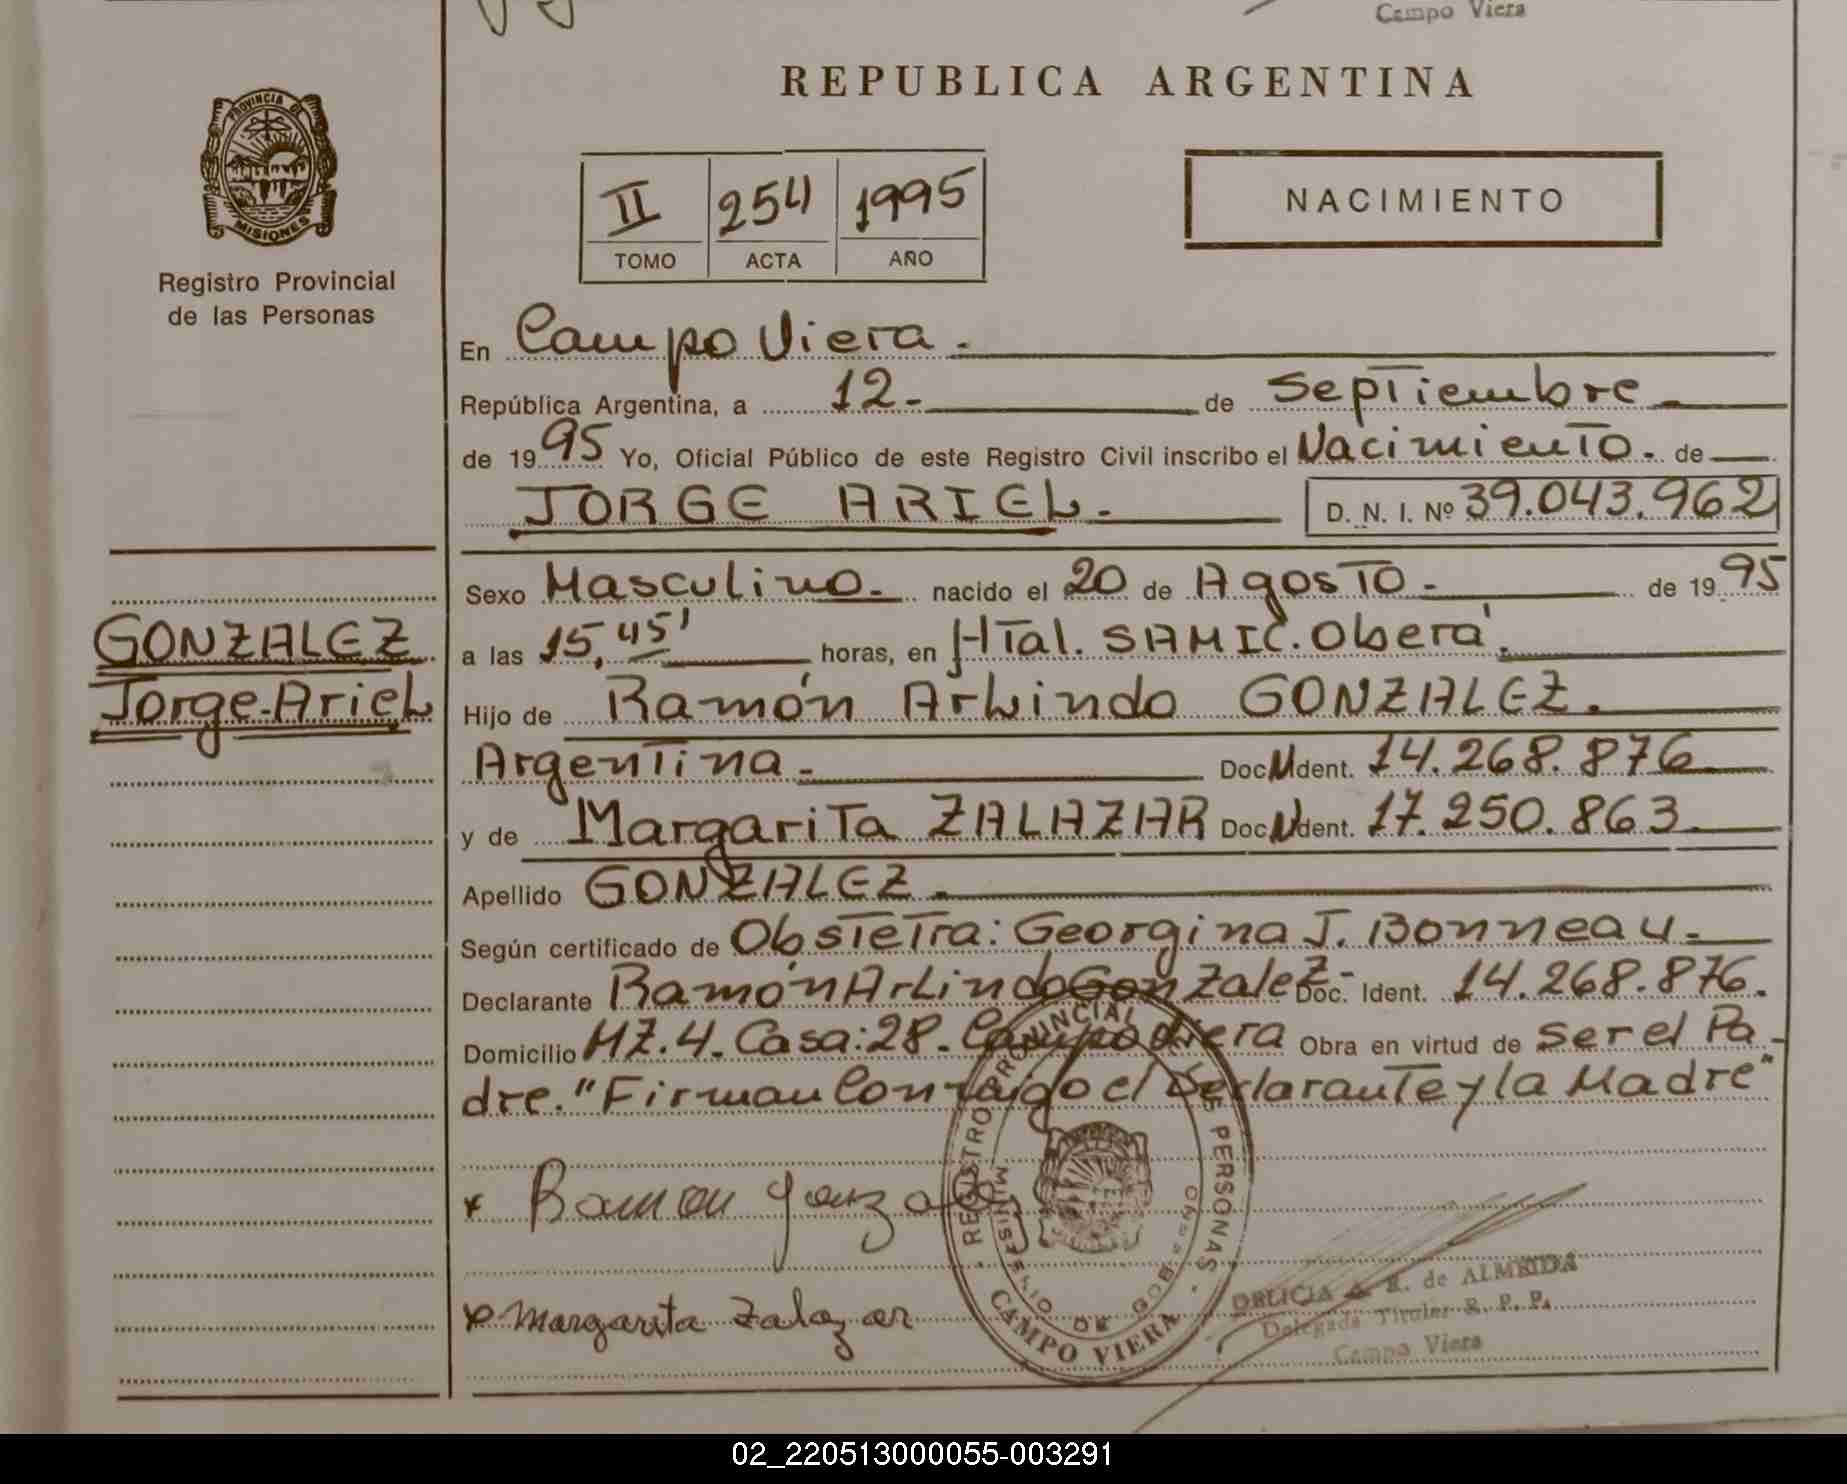 Campo Viera
REPUBLICA ARGENTINA
PROVINCIA DE
MISIONES
Registro Provincial
de las Personas
II 254 1995
TOMO ACTA AÑO
NACIMIENTO
En Campo Viera.
República Argentina, a 12. de Septiembre
de 1995 Yo, Oficial Público de este Registro Civil inscribo el Nacimiento. de
JORGE ARIEL. D. N. I. Nº 39.043.962
Sexo Masculino. nacido el 20 de Agosto. de 1995
GONZALEZ
Jorge-Ariel
a las 15,45' horas, en Htal. SAMIC. Oberá.
Hijo de Ramón Arlindo GONZALEZ.
Argentina. Doc. N Ident. 14.268.876
y de Margarita ZALAZAR Doc. N Ident. 17.250.863.
Apellido GONZALEZ.
Según certificado de Obstetra: Georgina J. Bonneau.
Declarante Ramón Arlindo Gonzalez- Doc. Ident. 14.268.876.
Domicilio MZ.4. Casa:28. Campo Viera Obra en virtud de ser el Pa-
dre. "Firman Conmigo el Declarante y la Madre"
x Ramon Gonzalez
x Margarita Zalazar
REGISTRO PROVINCIAL PERSONAS
MINISTERIO DE GOB
CAMPO VIERA
DELICIA A. R. de ALMEIDA
Delegada Titular R. P. P.
Campo Viera
02_220513000055-003291